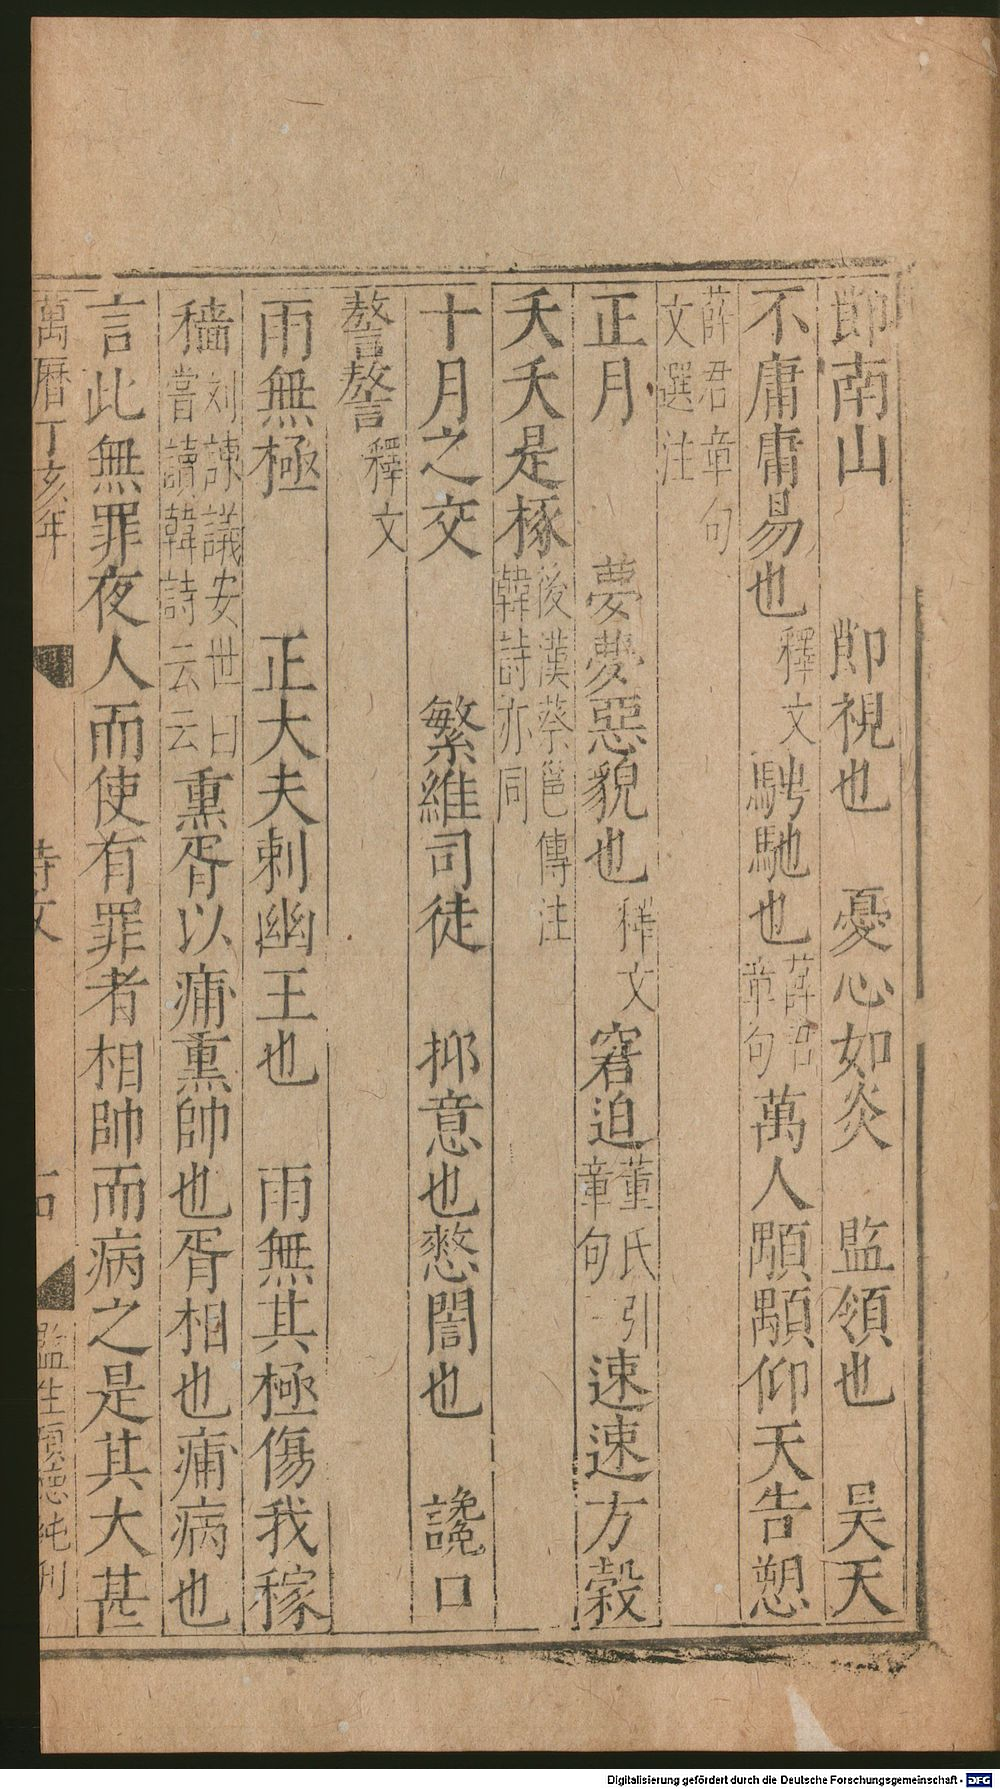 節南山 節視也 憂心如炎 監領也 吴天
不庸庸易也釋文騁馳也薛君章句萬人顒顒仰天告愬
薛君章句文選注
正月 夢夢惡貌也釋文窘迫董氏引章句速速方穀
夭夭是椓後漢蔡邕傳注韓詩亦同
十月之交 繁維司徒 抑意也憗誾也 讒口
謷謷釋文
雨無極 正大夫刺幽王也 雨無其極傷我稼
穡刘諫議安世曰嘗讀韓詩云云熏胥以痡熏帥也胥相也痡病也
言此無罪夜人而使有罪者相帥而病之是其大甚
萬曆丁亥年 詩文 監生 德純刊
Digitalisierung gefördert durch die Deutsche Forschungsgemeinschaft - DFG